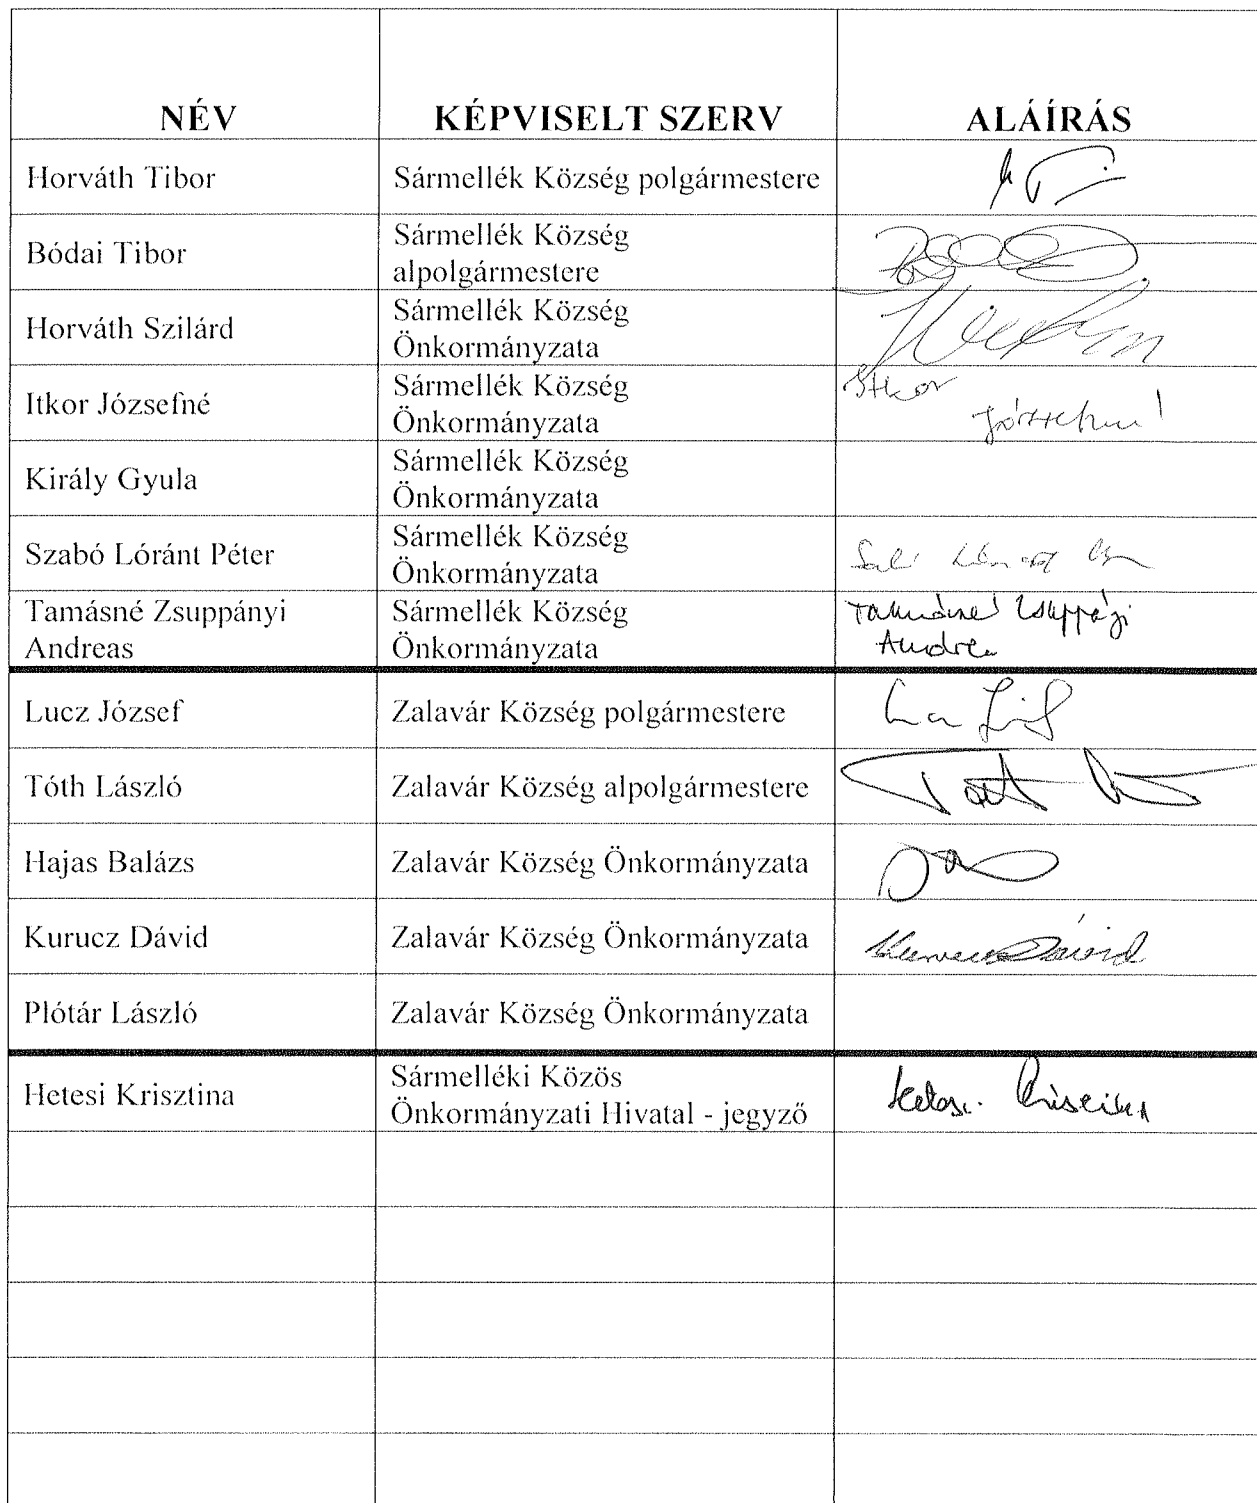 NÉV KÉPVISELT SZERV ALÁÍRÁS
Horváth Tibor Sármellék Község polgármestere
Bódai Tibor Sármellék Község
alpolgármestere
Horváth Szilárd Sármellék Község
Önkormányzata
Itkor Józsefné Sármellék Község Itkor
Önkormányzata Józsefné
Király Gyula Sármellék Község
Önkormányzata
Szabó Lóránt Péter Sármellék Község
Önkormányzata
Tamásné Zsuppányi Sármellék Község Tamásné
Andreas Önkormányzata Andrea
Lucz József Zalavár Község polgármestere
Tóth László Zalavár Község alpolgármestere Tóth
Hajas Balázs Zalavár Község Önkormányzata
Kurucz Dávid Zalavár Község Önkormányzata Kurucz Dávid
Plótár László Zalavár Község Önkormányzata
Hetesi Krisztina Sármelléki Közös Hetesi Krisztina
Önkormányzati Hivatal - jegyző